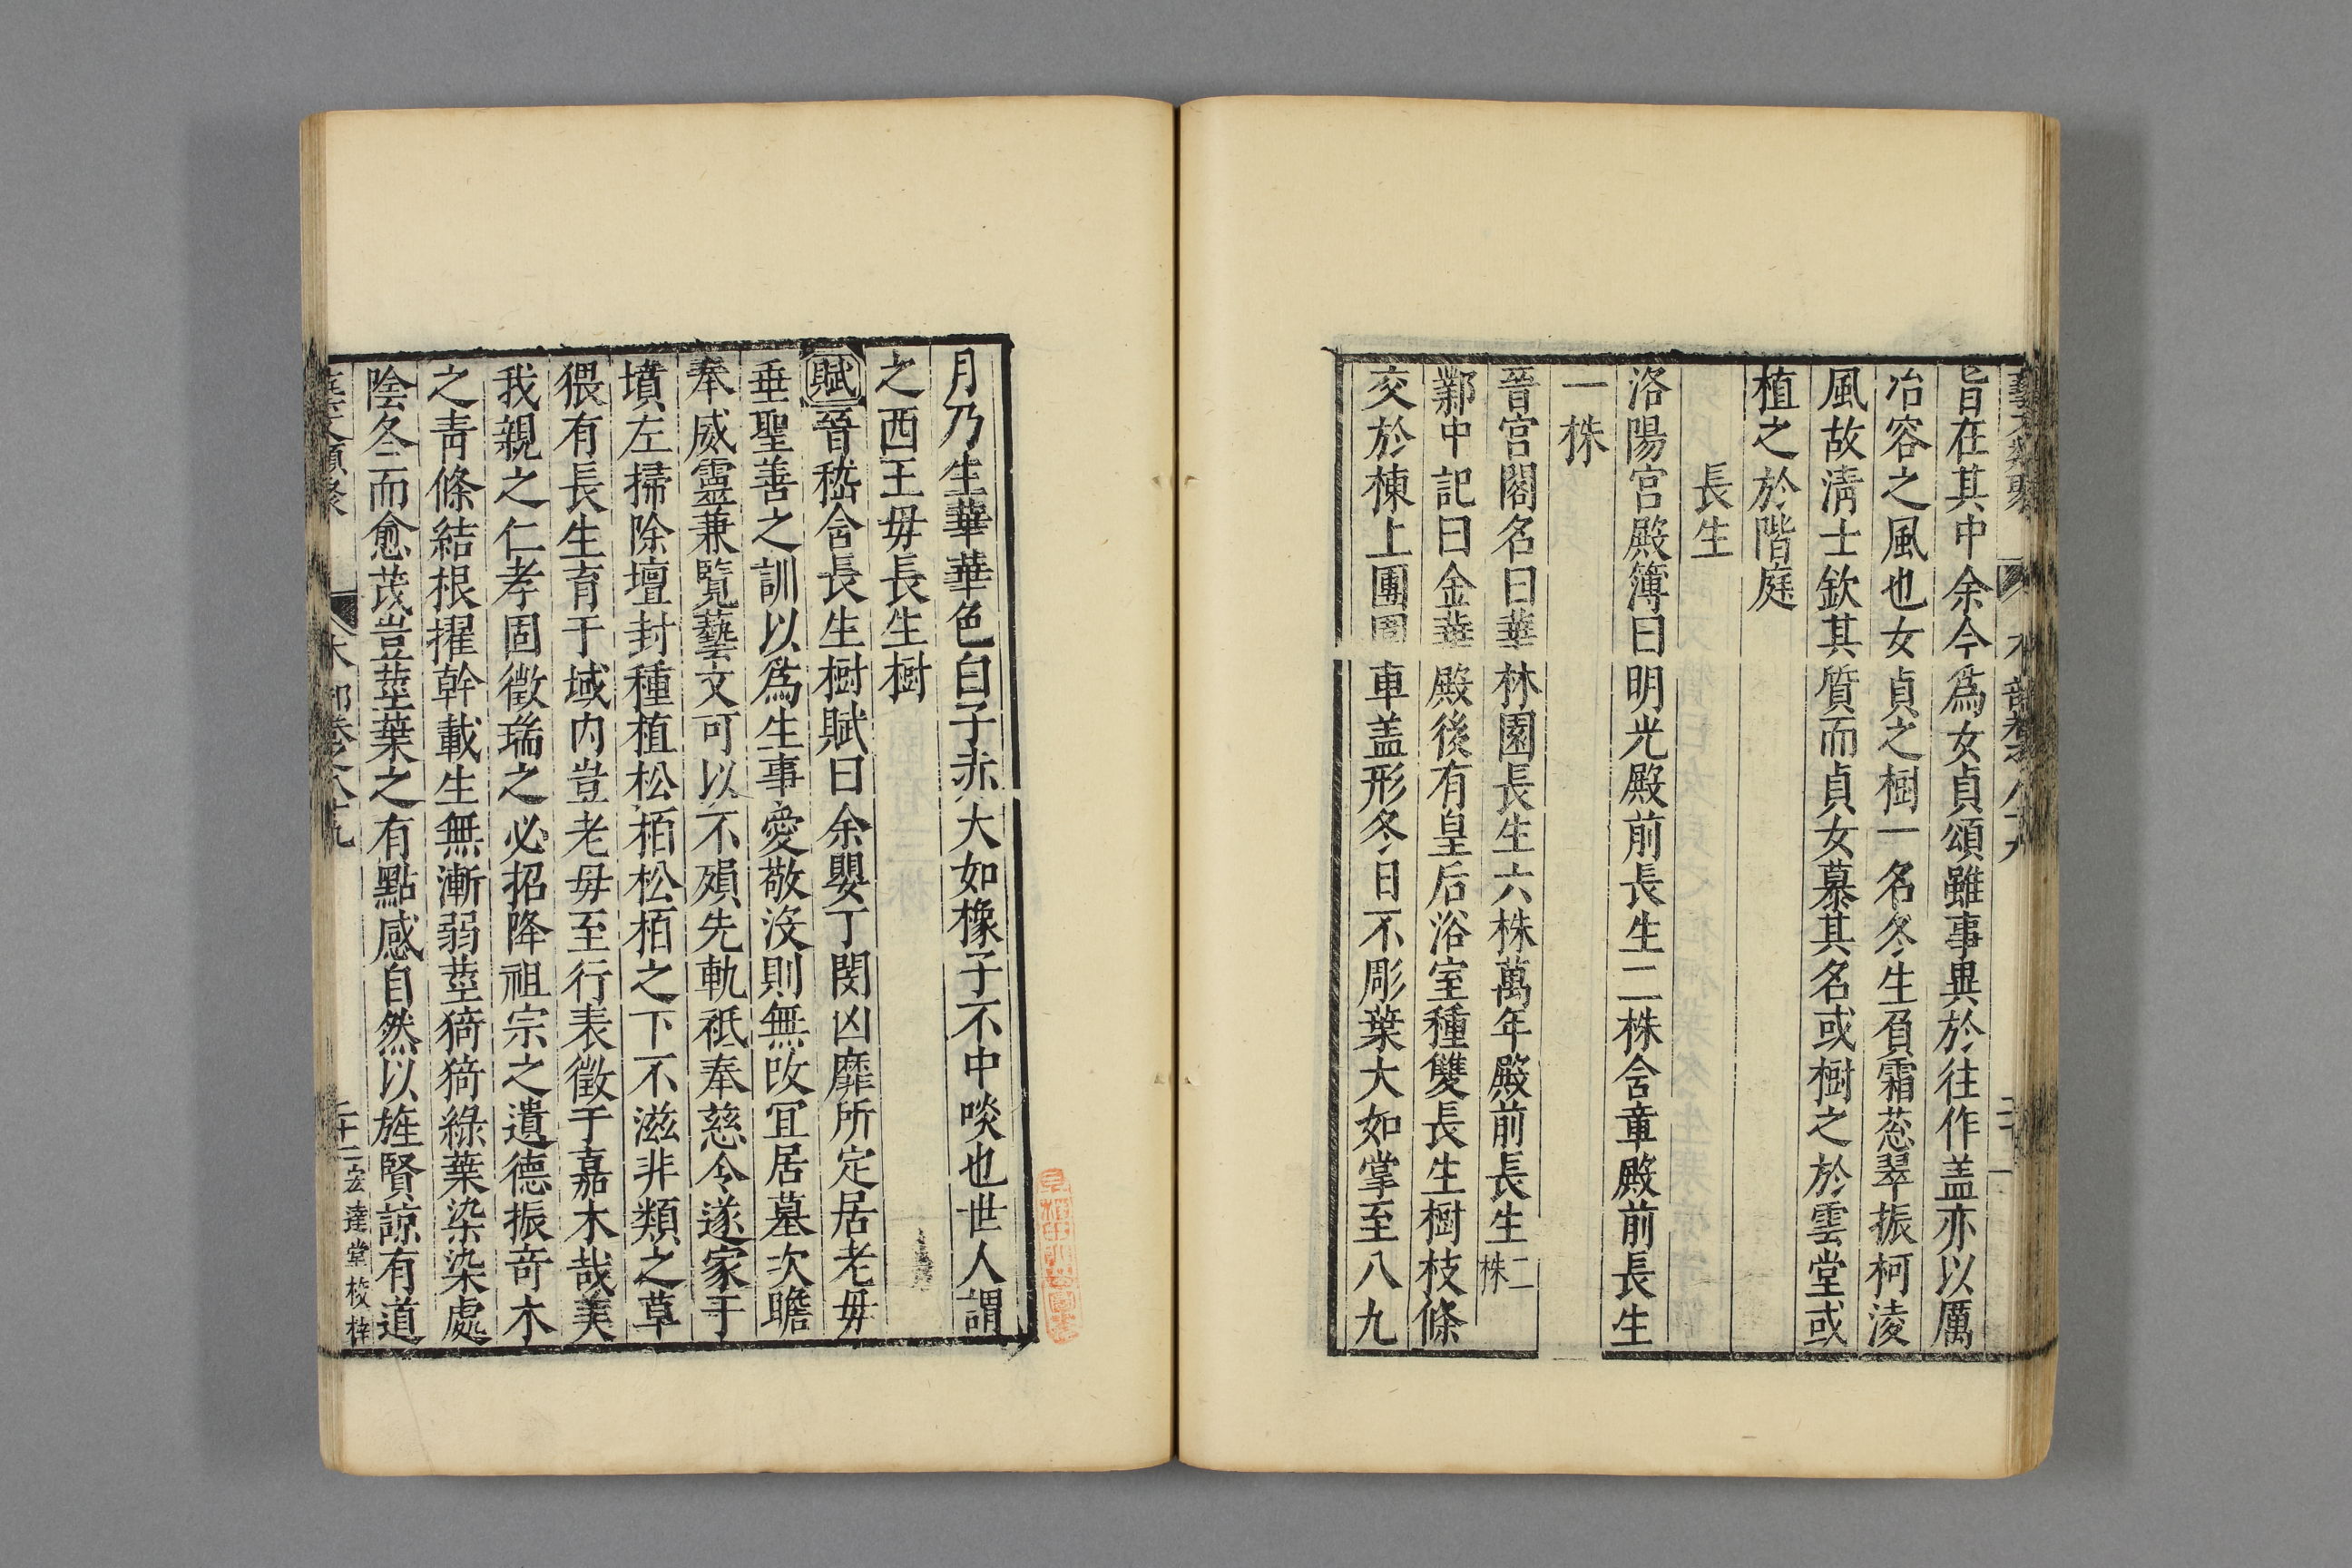 旨在其中余今爲女貞頌雖事異於往作盖亦以厲
冶容之風也女貞之樹一名冬生負霜葱翠振柯淩
風故淸士欽其質而貞女慕其名或樹之於雲堂或
植之於階庭
長生
洛陽宮殿簿曰明光殿前長生二株含章殿前長生
一株
晉宮閣名曰華林園長生六株萬年殿前長生二株
鄴中記曰金華殿後有皇后浴室種雙長生樹枝條
交於棟上團圓車盖形冬日不彫葉大如掌至八九
月乃生華華色白子赤大如橡子不中啖也世人謂
之西王母長生樹
賦晉嵇含長生樹賦曰余嬰丁閔凶靡所定居老母
垂聖善之訓以爲生事愛敬沒則無改冝居墓次瞻
奉威靈兼覽藝文可以不殞先軌祗奉慈令遂家于
墳左掃除壇封種植松栢松栢之下不滋非類之草
猥有長生育于域内豈老母至行表徵于嘉木哉美
我親之仁孝固徵瑞之必招降祖宗之遺德振奇木
之靑條結根擢幹載生無漸弱莖猗猗綠葉染染處
陰冬而愈茂豈莖葉之有點感自然以旌賢諒有道
宏達堂校梓